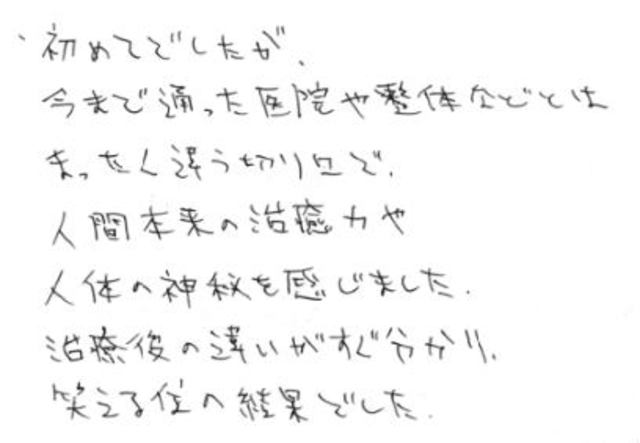 初めてでしたが、
今まで通った医院や整体などとは
まったく違う切り口で、
人間本来の治癒力や
人体の神秘を感じました。
治療後の違いがすぐ分かり、
笑える位の結果でした。